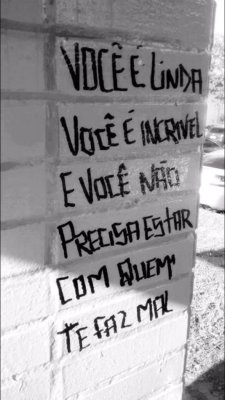 VOCÊ É LINDA
VOCÊ É INCRIVEL
E VOCÊ NÃO
PRECISA ESTAR
COM QUEM
TE FAZ MAL